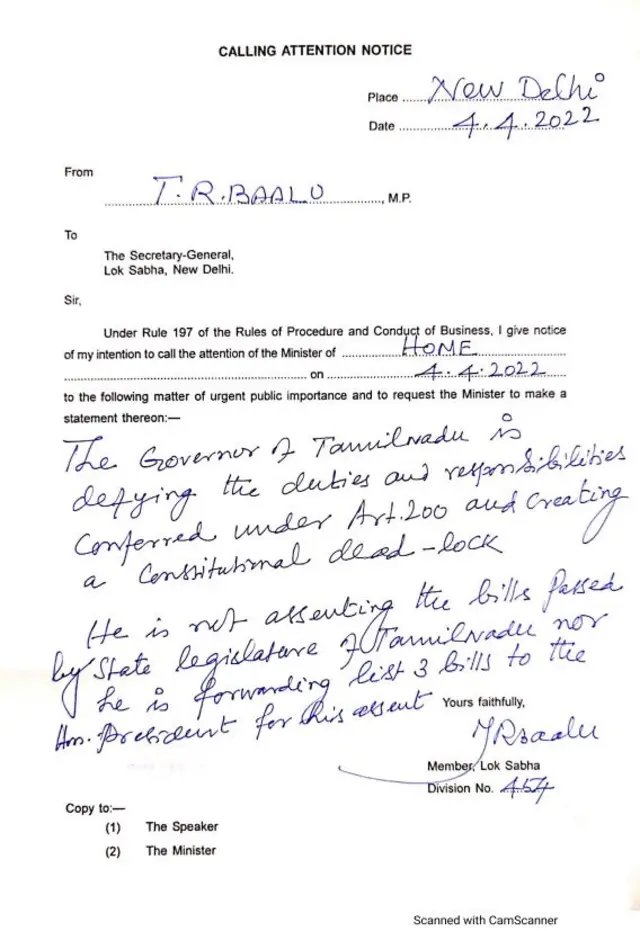 CALLING ATTENTION NOTICE
Place ........ New Delhi
Date ........ 4.4.2022
From
T.R.BAALU ........, M.P.
To
The Secretary-General,
Lok Sabha, New Delhi.
Sir,
Under Rule 197 of the Rules of Procedure and Conduct of Business, I give notice
of my intention to call the attention of the Minister of ........ HOME ........
........ on ........ 4.4.2022 ........
to the following matter of urgent public importance and to request the Minister to make a
statement thereon:—
The Governor of Tamilnadu is
defying the duties and responsibilities
conferred under Art.200 and creating
a Constitutional dead-lock
He is not assenting the bills passed
by State legislature of Tamilnadu nor
he is forwarding list 3 bills to the
Hon. President for his assent
Yours faithfully,
TRBaalu
Member, Lok Sabha
Division No. 454
Copy to:—
(1) The Speaker
(2) The Minister
Scanned with CamScanner